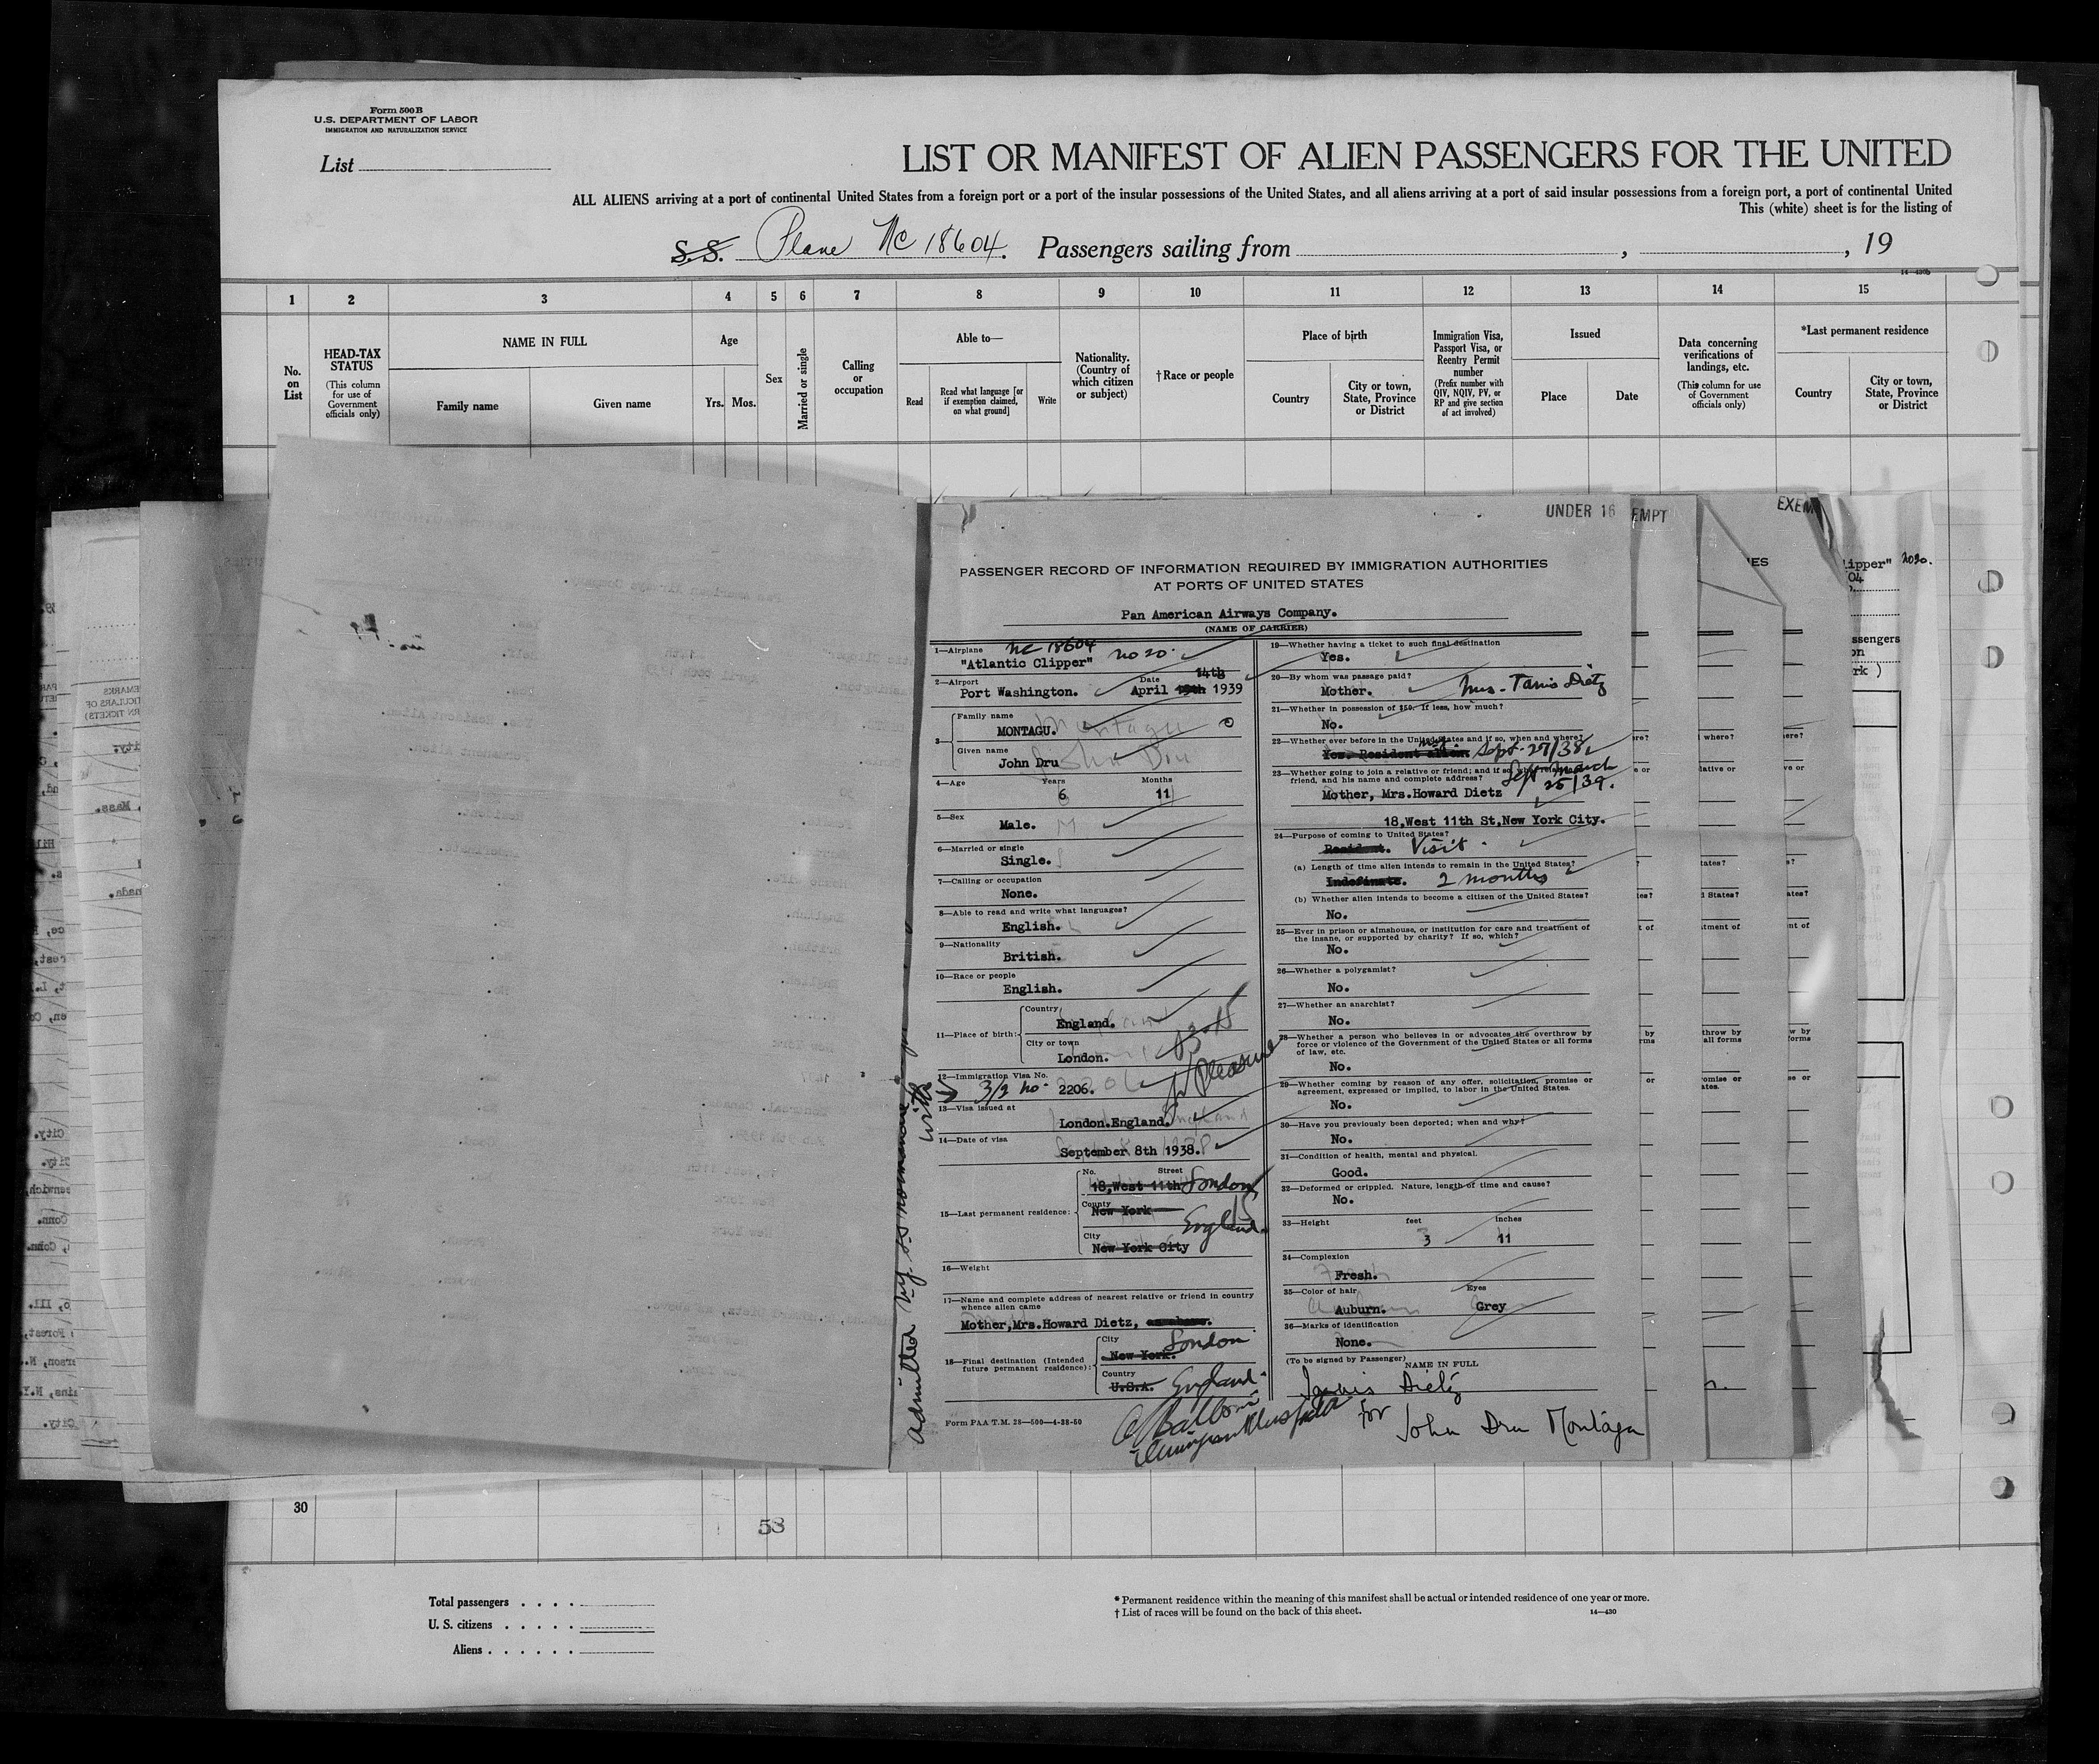 Form 500 B
U.S. DEPARTMENT OF LABOR
IMMIGRATION AND NATURALIZATION SERVICE
List
LIST OR MANIFEST OF ALIEN PASSENGERS FOR THE UNITED
ALL ALIENS arriving at a port of continental United States from a foreign port or a port of the insular possessions of the United States, and all aliens arriving at a port of said insular possessions from a foreign port, a port of continental United
This (white) sheet is for the listing of
S.S. Plane NC 18604. Passengers sailing from , , 19
14—430b
1 2 3 4 5 6 7 8 9 10 11 12 13 14 15
No. on List
HEAD-TAX STATUS
(This column for use of Government officials only)
NAME IN FULL
Family name Given name
Age
Yrs. Mos.
Sex
Married or single
Calling or occupation
Able to—
Read
Read what language [or if exemption claimed, on what ground]
Write
Nationality. (Country of which citizen or subject)
†Race or people
Place of birth
Country
City or town, State, Province or District
Immigration Visa, Passport Visa, or Reentry Permit number
(Prefix number with QIV, NQIV, PV, or RP and give section of act involved)
Issued
Place Date
Data concerning verifications of landings, etc.
(This column for use of Government officials only)
*Last permanent residence
Country
City or town, State, Province or District
UNDER 16
EMPT
EXEM
PASSENGER RECORD OF INFORMATION REQUIRED BY IMMIGRATION AUTHORITIES
AT PORTS OF UNITED STATES
Pan American Airways Company.
(NAME OF CARRIER)
1—Airplane NC 18604
"Atlantic Clipper" no 20.
2—Airport Date 14th
Port Washington. April 1939
3
Family name
MONTAGU.
Given name
John Dru
4—Age Years Months
6 11
5—Sex
Male.
6—Married or single
Single.
7—Calling or occupation
None.
8—Able to read and write what languages?
English.
9—Nationality
British.
10—Race or people
English.
11—Place of birth:
Country
England.
City or town
London.
12—Immigration Visa No.
3/2 no. 2206.
for Pleasure
13—Visa issued at
London.England.
14—Date of visa
September 8th 1938.
15—Last permanent residence:
No. Street
18,West 11th London
County
New York England.
City
New York City
16—Weight
17—Name and complete address of nearest relative or friend in country whence alien came
Mother,Mrs.Howard Dietz,
18—Final destination (Intended future permanent residence):
City
New York. London
Country
U.S.A. England.
Form PAA T.M. 28—500—4-38-50
19—Whether having a ticket to such final destination
Yes.
20—By whom was passage paid?
Mother. Mrs. Tanis Dietz
21—Whether in possession of $50. If less, how much?
No.
22—Whether ever before in the United States and if so, when and where?
Yes. Resident alien. Sept. 27/38
23—Whether going to join a relative or friend; and if so, what relative or friend, and his name and complete address?
March 25/39.
Mother, Mrs.Howard Dietz
18,West 11th St,New York City.
24—Purpose of coming to United States?
Resident. Visit.
(a) Length of time alien intends to remain in the United States?
Indefinate. 2 months
(b) Whether alien intends to become a citizen of the United States?
No.
25—Ever in prison or almshouse, or institution for care and treatment of the insane, or supported by charity? If so, which?
No.
26—Whether a polygamist?
No.
27—Whether an anarchist?
No.
28—Whether a person who believes in or advocates the overthrow by force or violence of the Government of the United States or all forms of law, etc.
No.
29—Whether coming by reason of any offer, solicitation, promise or agreement, expressed or implied, to labor in the United States.
No.
30—Have you previously been deported; when and why?
No.
31—Condition of health, mental and physical.
Good.
32—Deformed or crippled. Nature, length of time and cause?
No.
33—Height feet inches
3 11
34—Complexion
Fresh.
35—Color of hair Eyes
Auburn. Grey
36—Marks of identification
None.
(To be signed by Passenger) NAME IN FULL
Tanis Dietz
for John Dru Montagu
30
53
Total passengers
U. S. citizens
Aliens
* Permanent residence within the meaning of this manifest shall be actual or intended residence of one year or more.
† List of races will be found on the back of this sheet. 14—430